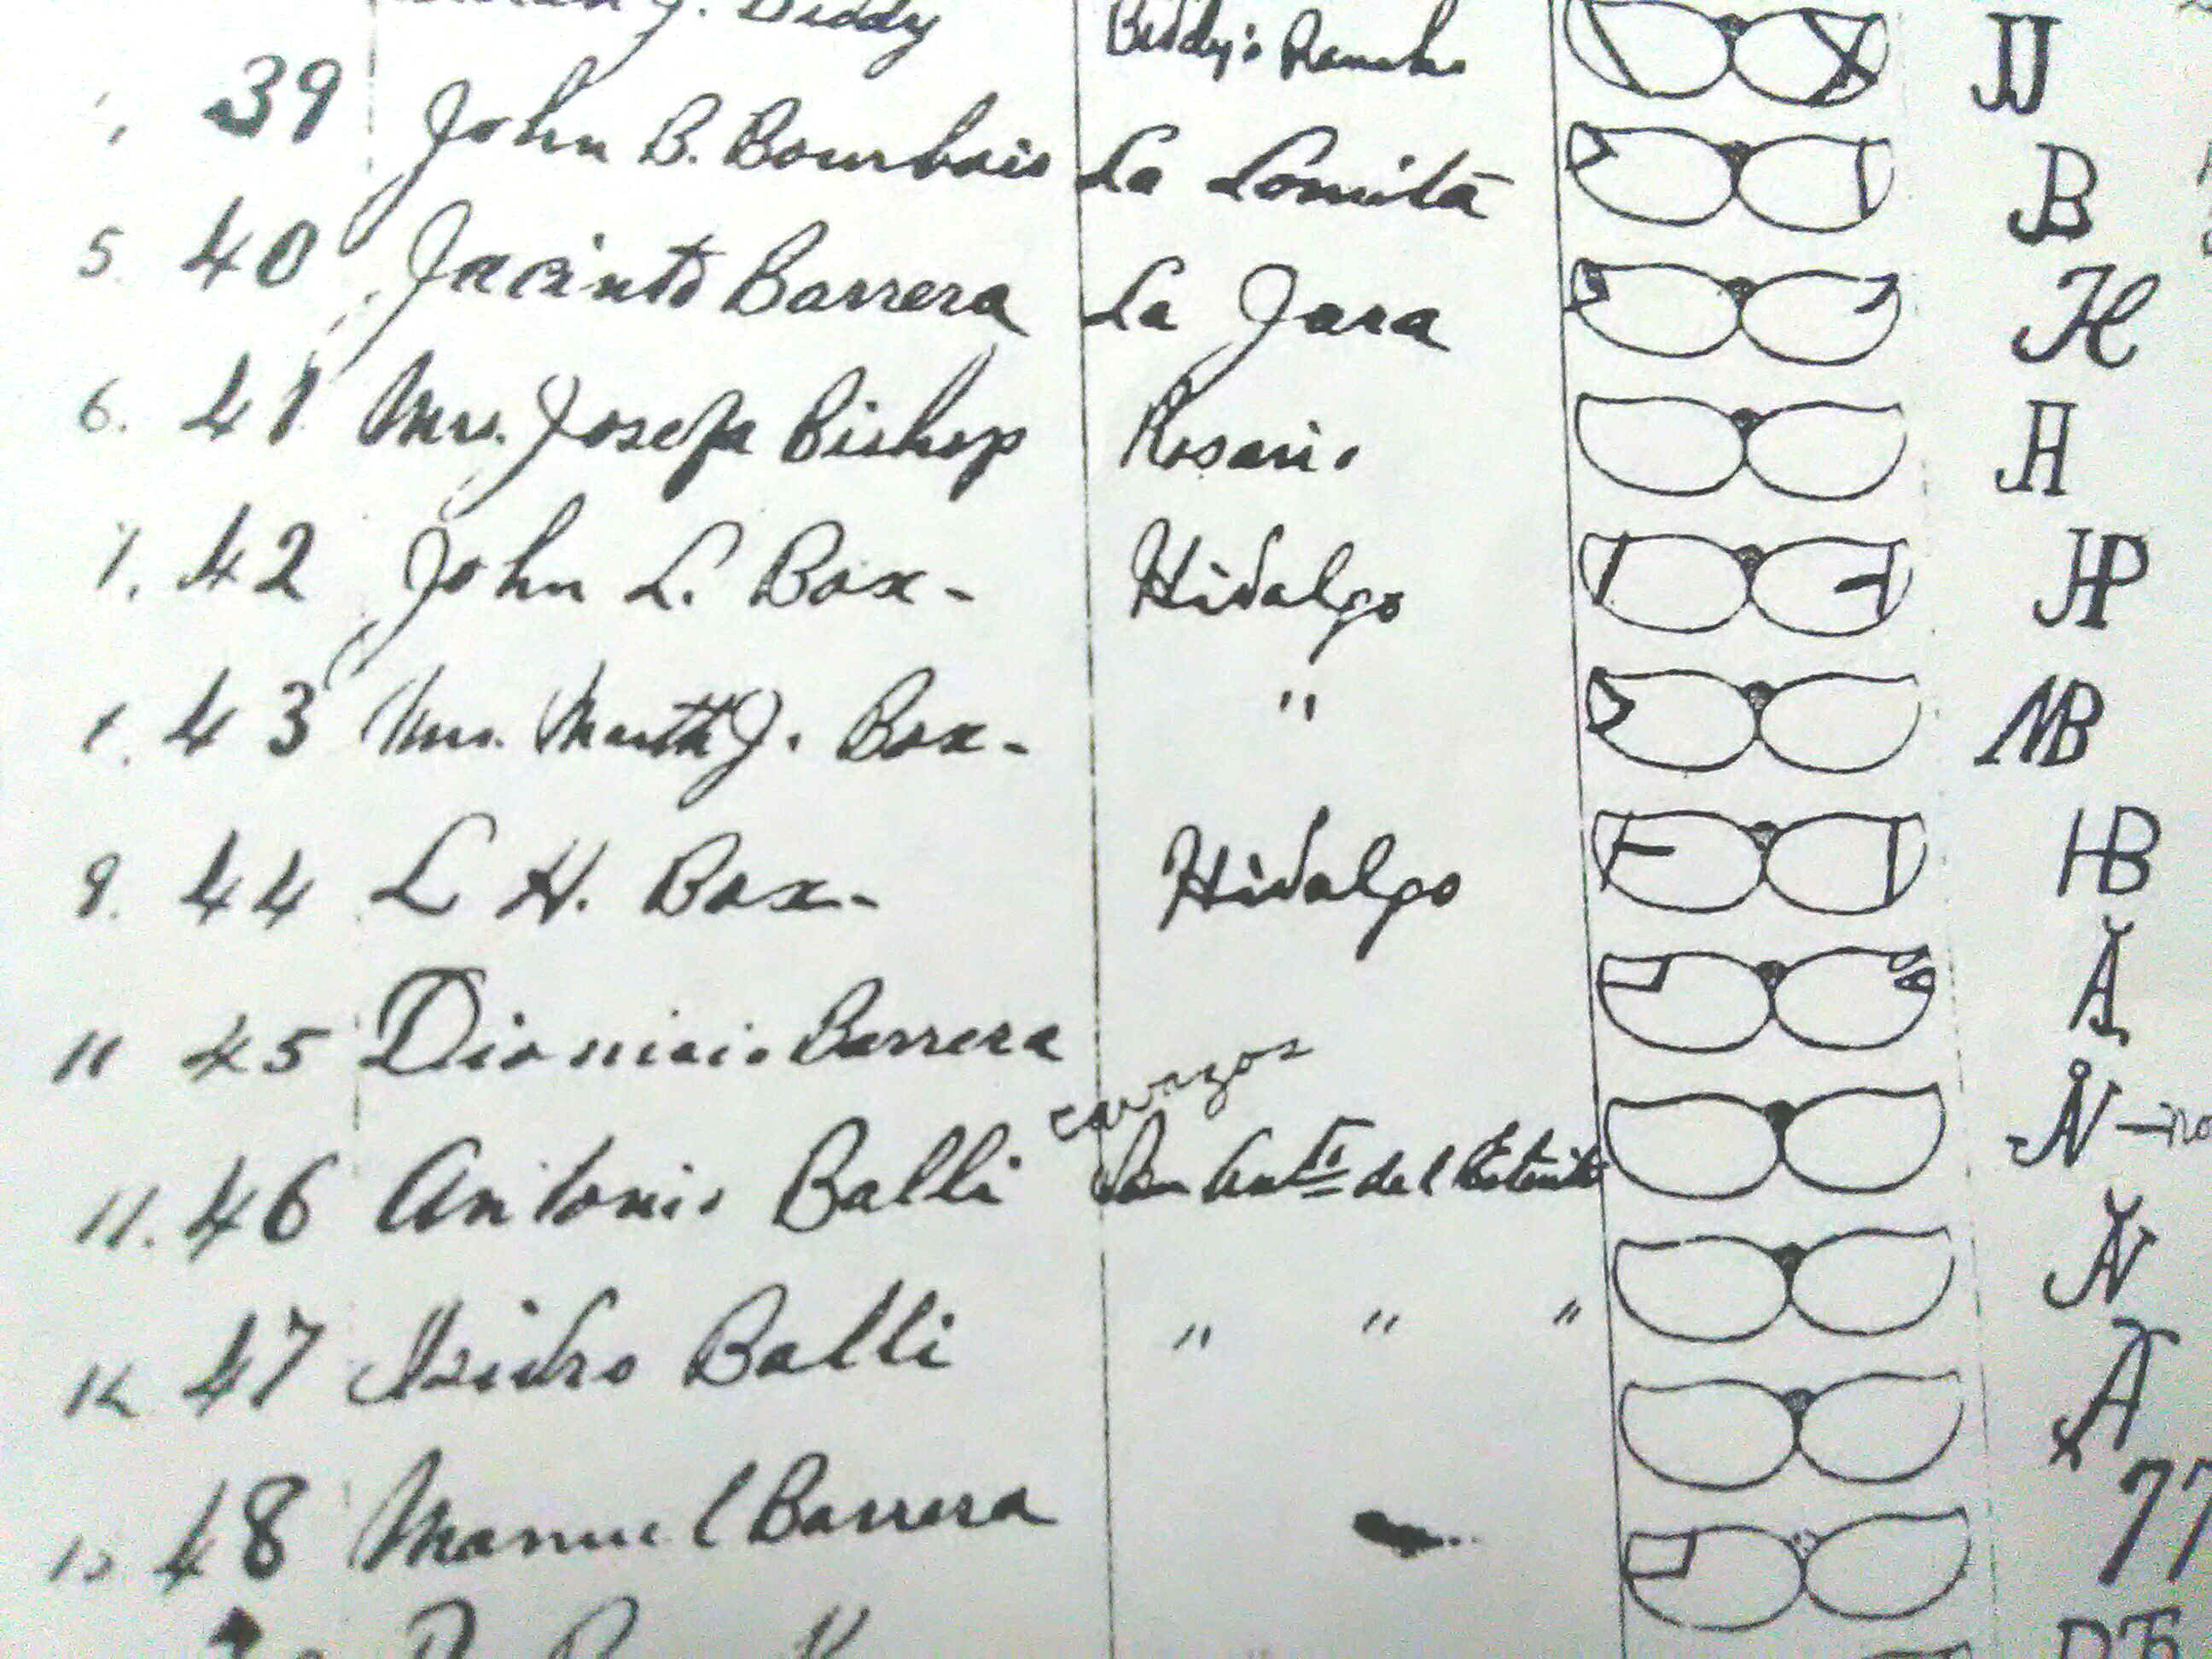 J. Biddy Biddy's Rancho JJ
39 John B. Bourbois La Lomita JB
5. 40 Jacinto Barrera La Jara H
6. 41 Mrs. Josefa Bishop Rosario JH
7. 42 John L. Box - Hidalgo JHP
43 Mrs. Marth J. Box - " MB
9. 44 L H. Box - Hidalgo HB
11 45 Dionicio Barrera A
Cavazos
11. 46 Antonio Balli San Anto del N
47 Ysidro Balli " " " N
48 Manuel Barrera 77